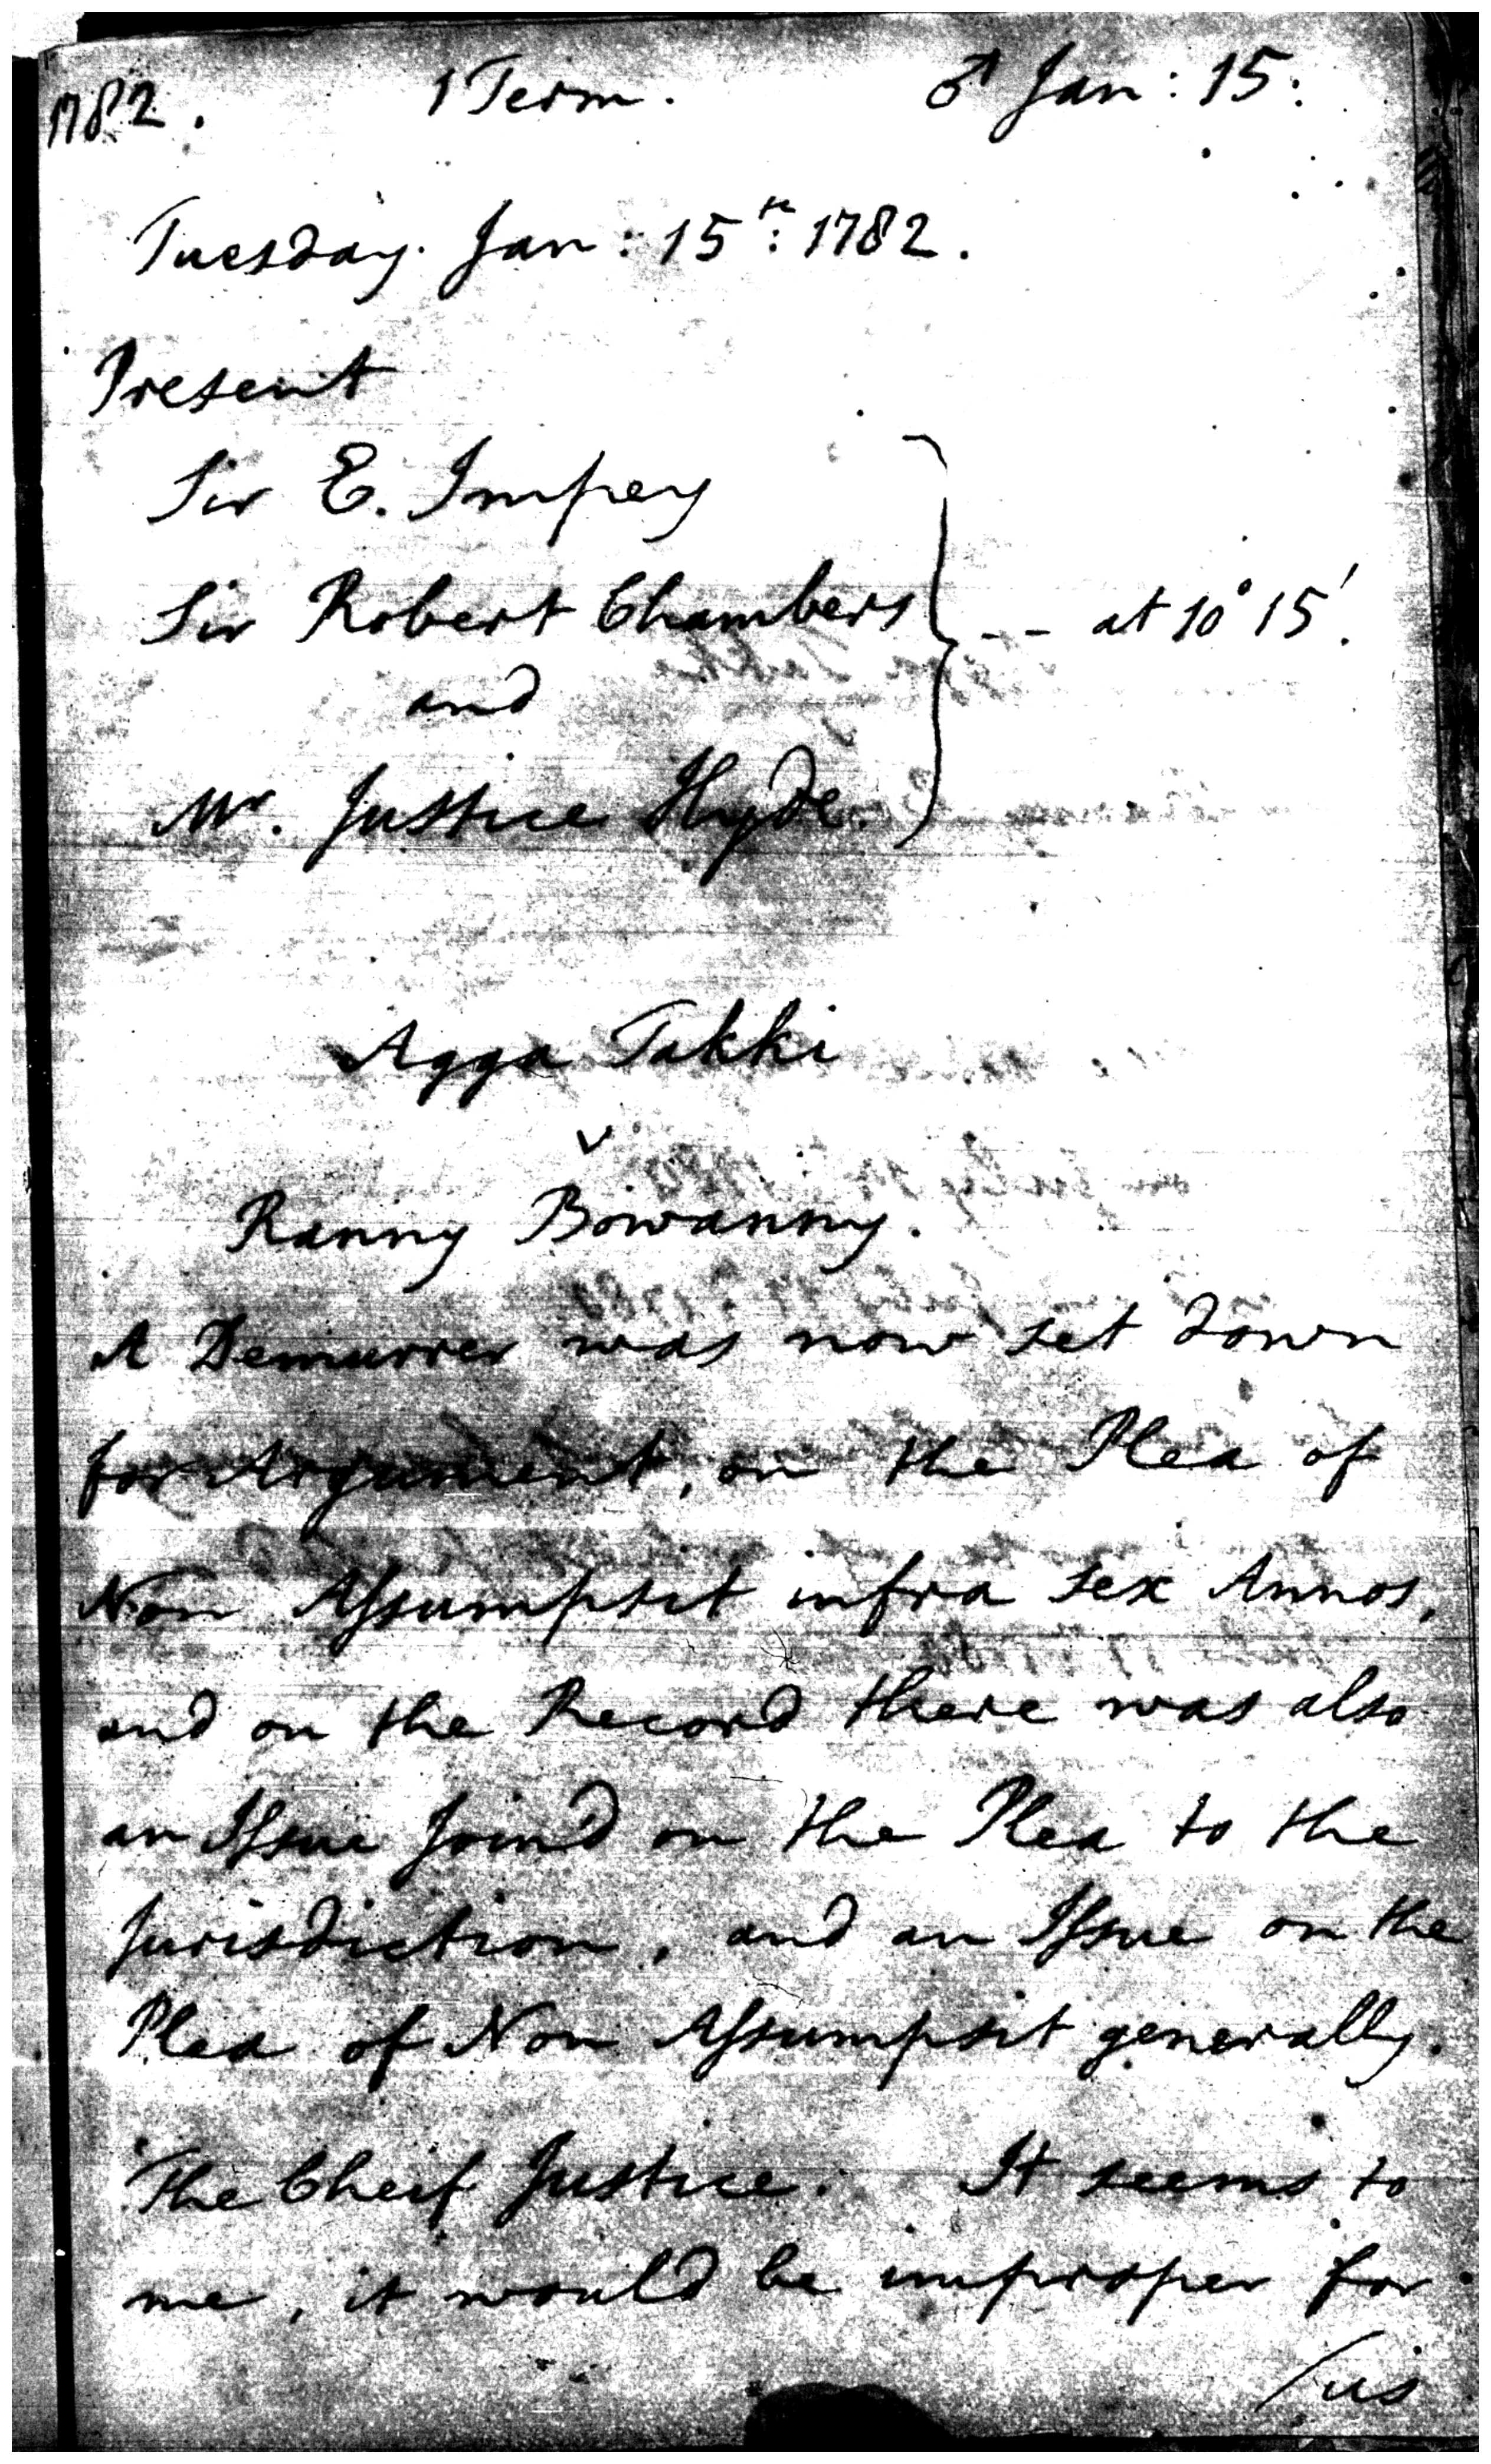 1782. 1 Term. ♂ Jan: 15:
Tuesday. Jan: 15th: 1782.
Present
Sir E. Impey
Sir Robert Chambers -- at 10° 15'.
and
Mr. Justice Hyde.
Agga Takki
v
Ranny Bowanny.
A Demurrer was now set down
for Argument, on the Plea of
Non Aſsumpsit infra sex Annos,
and on the Record there was also
an Iſsue joind on the Plea to the
Jurisdiction, and an Iſsue on the
Plea of Non Aſsumpsit generally.
The Cheif Justice. It seems to
me, it would be improper for
/us